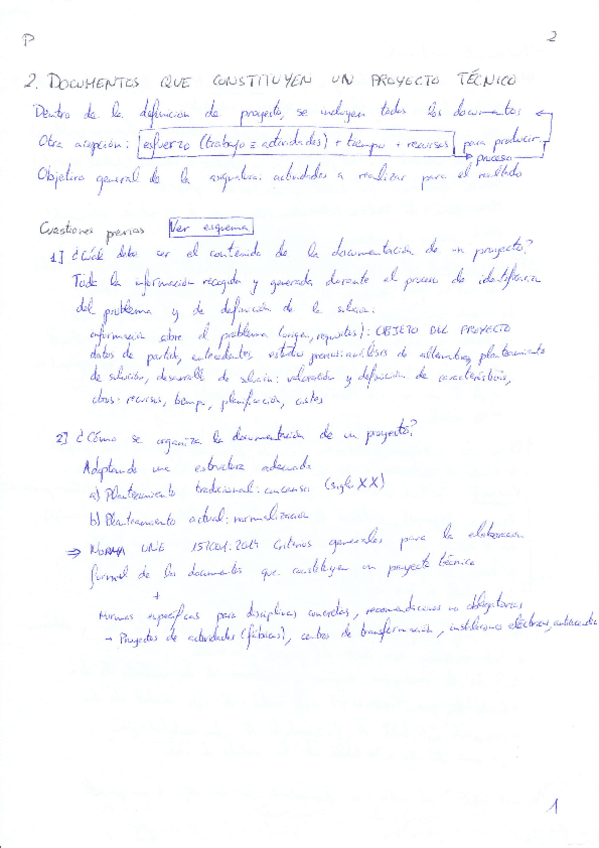 P
2
2. DOCUMENTOS QUE CONSTITUYEN UN PROYECTO TÉCNICO
Dentro de la definición de proyecto, se incluyen todos los documentos
Otra acepción: esfuerzo (trabajo = actividades) + tiempo + recursos para producir
proceso
Objetivo general de la asignatura: actividades a realizar para el resultado
Cuestiones previas Ver esquema
1] ¿Cuál debe ser el contenido de la documentación de un proyecto?
Toda la información recogida y generada durante el proceso de identificación
del problema y de definición de la solución:
información sobre el problema (origen, requisitos): OBJETO DEL PROYECTO
datos de partida, antecedentes, estudios previos: análisis de alternativas, planteamiento
de solución, desarrollo de solución: valoración y definición de características,
otros: recursos, tiempo, planificación, costes
2] ¿Cómo se organiza la documentación de un proyecto?
Adoptando una estructura adecuada
a) Planteamiento tradicional: consenso (siglo XX)
b) Planteamiento actual: normalización
⇒ NORMA UNE 157001:2014 Criterios generales para la elaboración
formal de los documentos que constituyen un proyecto técnico
+
Normas específicas para disciplinas concretas, recomendaciones no obligatorias
→ Proyectos de actividades (fábricas), centros de transformación, instalaciones eléctricas,
1